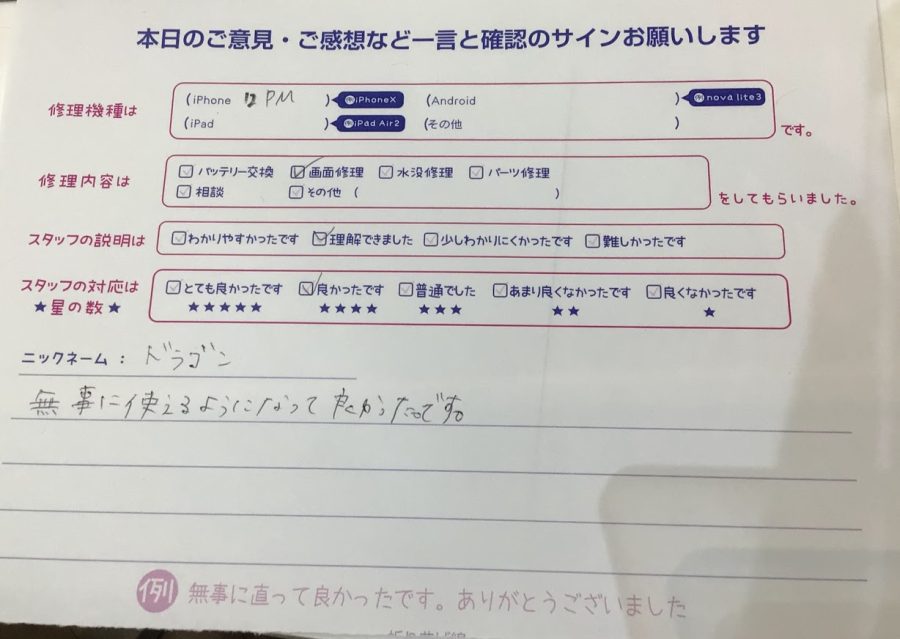 本日のご意見・ご感想など一言と確認のサインお願いします
修理機種は
(iPhone 12 PM ) 例iPhoneX (Android ) 例nova lite3
(iPad ) 例iPad Air2 (その他 )
です。
修理内容は
バッテリー交換 画面修理 水没修理 パーツ修理
相談 その他 ( )
をしてもらいました。
スタッフの説明は わかりやすかったです 理解できました 少しわかりにくかったです 難しかったです
スタッフの対応は とても良かったです 良かったです 普通でした あまり良くなかったです 良くなかったです
★星の数★ ★★★★★ ★★★★ ★★★ ★★ ★
ニックネーム： ドラゴン
無事に使えるようになって良かったです。
例 無事に直って良かったです。ありがとうございました